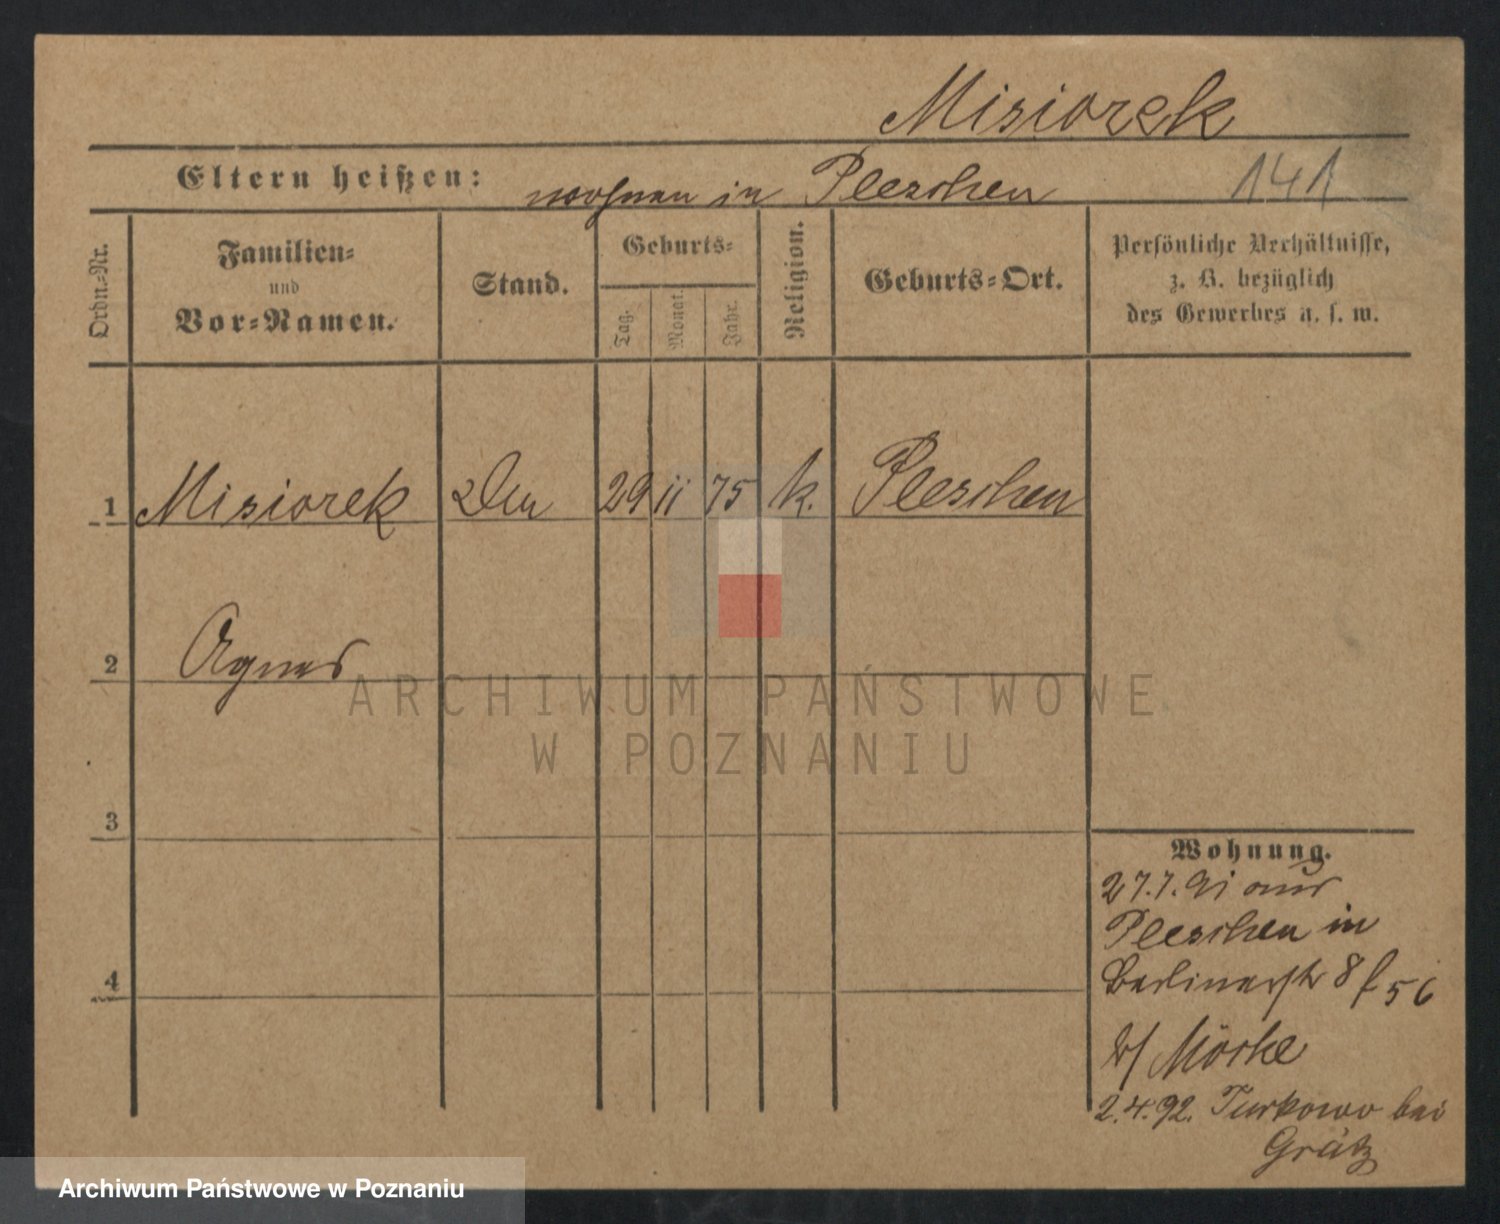 Misiorek
Eltern heißen: wohnen in Pleschen 141
Ordn.-Nr.
Familien-
und
Vor-Namen.
Stand.
Geburts-
Tag.
Monat.
Jahr.
Religion.
Geburts-Ort.
Persönliche Verhältnisse,
z. B. bezüglich
des Gewerbes u. s. w.
1 Misiorek 29 11 75 k. Pleschen
2 Agnes
3
4
Wohnung.
27.7.91 aus
Pleschen in
Berlinerstr 8 f 56
b/ Mörke
2.4.92. Turkowo bei
Grätz
ARCHIWUM PAŃSTWOWE
W POZNANIU
Archiwum Państwowe w Poznaniu